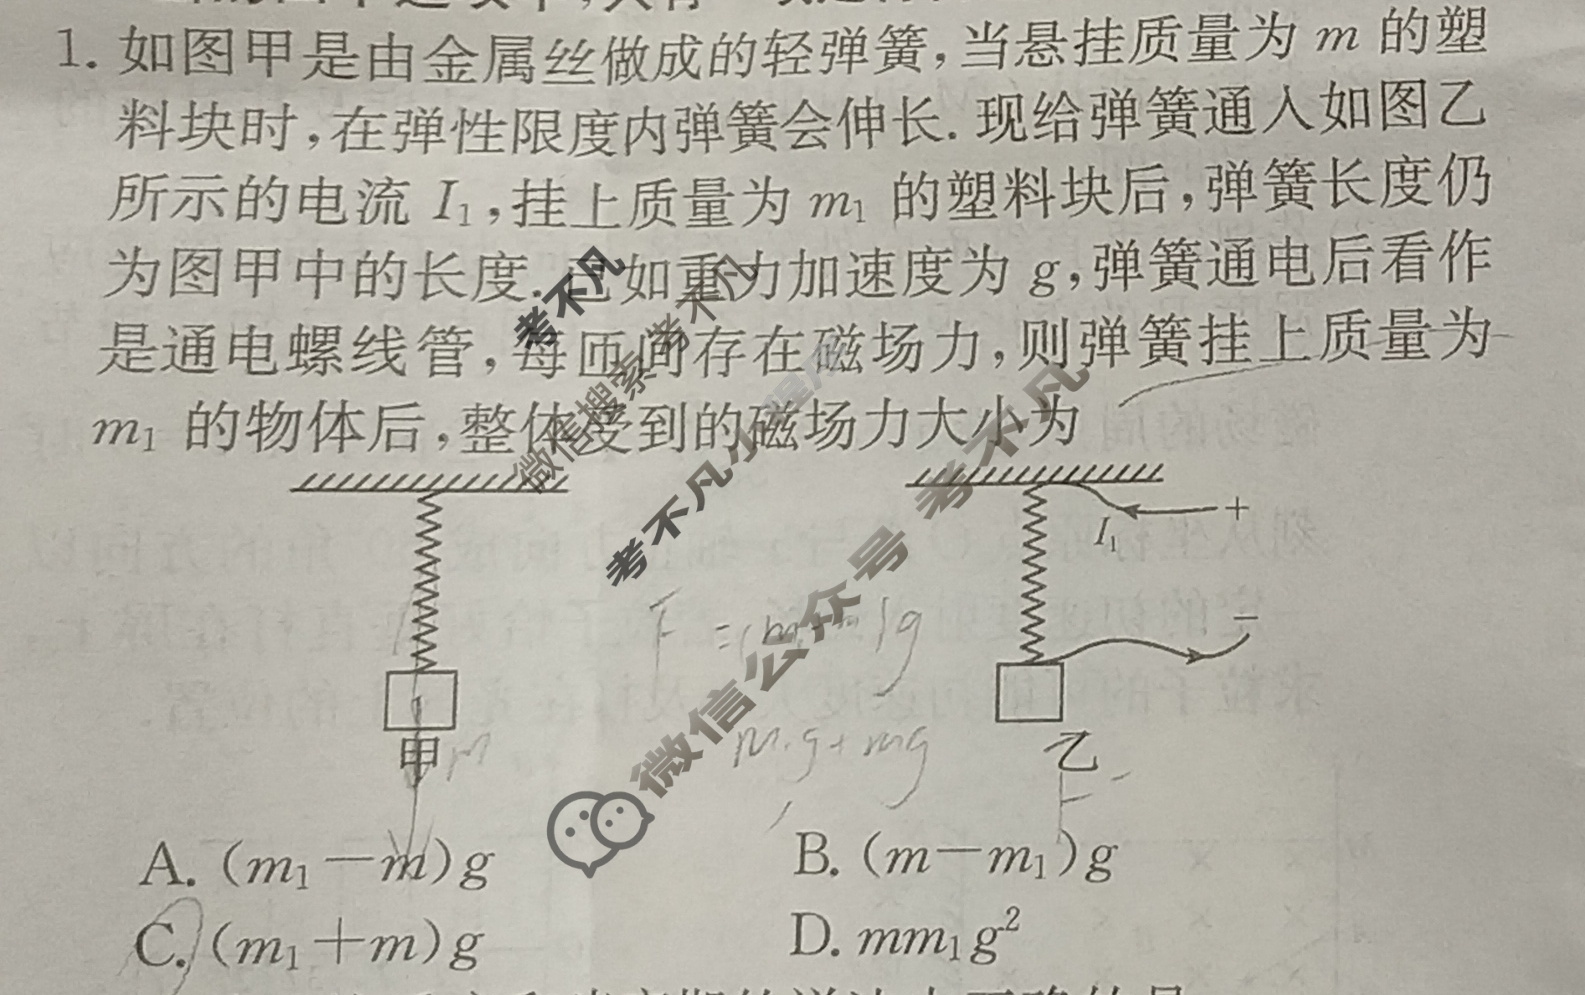 1. 如图甲是由金属丝做成的轻弹簧,当悬挂质量为 m 的塑
料块时,在弹性限度内弹簧会伸长. 现给弹簧通入如图乙
所示的电流 I₁,挂上质量为 m₁ 的塑料块后,弹簧长度仍
为图甲中的长度. 已知重力加速度为 g,弹簧通电后看作
是通电螺线管,每匝间存在磁场力,则弹簧挂上质量为
m₁ 的物体后,整体受到的磁场力大小为
考不凡
微信搜索 考不凡
考不凡小程序
微信公众号 考不凡
+
I₁
−
m₁g+mg
甲
m
乙
F
A. (m₁−m)g
B. (m−m₁)g
C. (m₁+m)g
D. mm₁g²